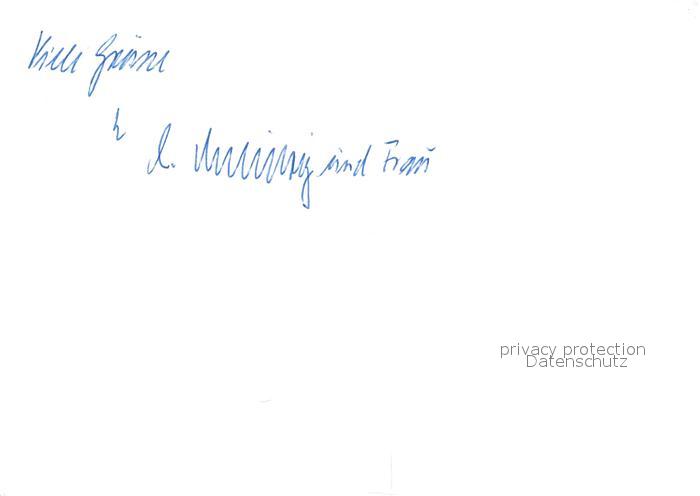 Viele Grüsse
und Frau
privacy protection
Datenschutz